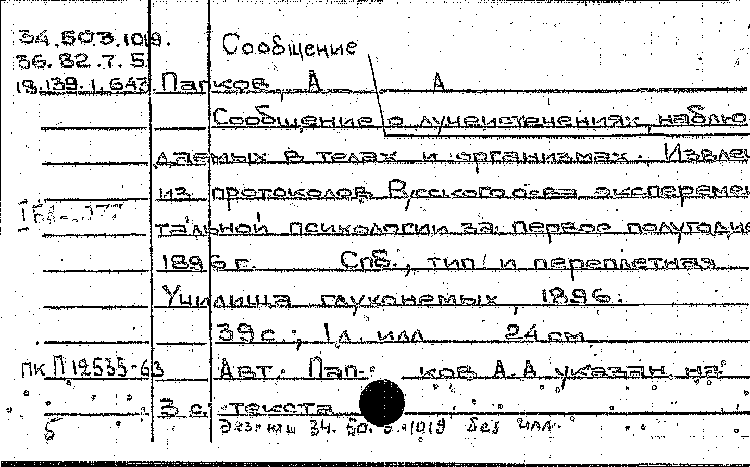 34.503.1019.
Сообщение
36.82.7.5
18.139.1.643 Папков, А А
Сообщение о лучеистечениях, наблю
даемых в телах и организмах. Извлеч
из протоколов Русского о-ва эксперемен
тальной психологии за первое полугодие
1896 г. Спб., тип. и переплетная
Училища глухонемых, 1896.
39 с.; 1 л. илл 24 см
ПК П 12535-63 Авт. Пап- ков А.А указан на
3 с. текста
Экз. 34. 50. 3. 1019 без илл.
5